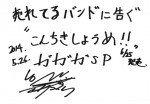 売れてるバンドに告ぐ
"こんちきしょうめ!!"
2014.
5.26. ガガガSP 6/25 発売